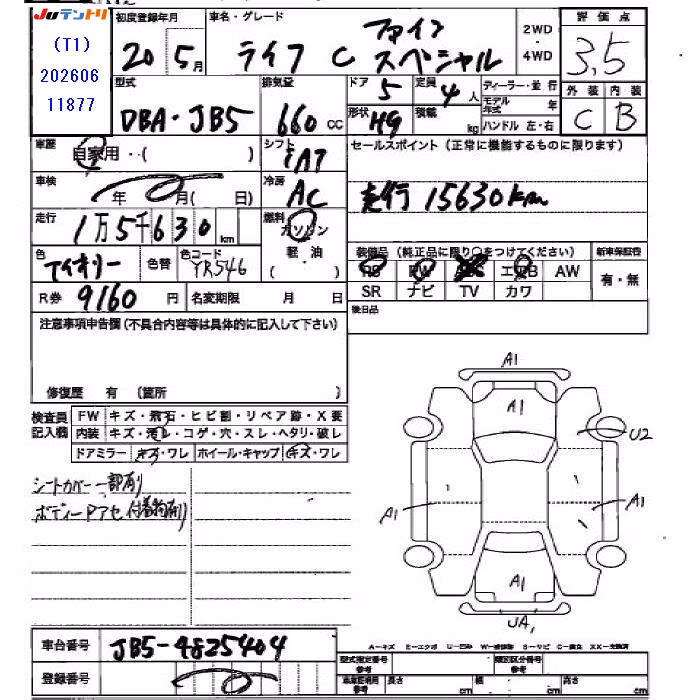 JUテントリ
(T1)
202606
11877
初度登録年月
20 5月
車名・グレード
ライフ C
ファイン
スペシャル
2WD
・
4WD
評価点
3,5
型式
DBA・JB5
排気量
660 cc
ドア 5
定員 4人
ディーラー・並行
モデル年式 年
形状 HG
積載 kg
ハンドル 左・右
外装 内装
C B
車歴
自家用・( )
シフト
冷房
AC
セールスポイント (正常に機能するものに限ります)
走行 15630km
車検
年 月( 日)
走行
1万5千630 km
燃料
ガソリン
軽・油
( )
色
アイボリー
色替
色コード
YR546
装備品 (純正品に限り〇をつけてください)
新車保証書
PS PW ABS エアB AW
有・無
SR ナビ TV カワ
R券 9160 円
名変期限 月 日
後日品
注意事項申告欄(不具合内容等は具体的に記入して下さい)
修復歴 有 (箇所 )
検査員
記入欄
FW キズ・飛石・ヒビ割・リペア跡・X要
内装 キズ・汚レ・コゲ・穴・スレ・ヘタリ・破レ
ドアミラー キズ・ワレ ホイール・キャップ キズ・ワレ
シートカバー一部有り
ボディーPアセ 付着物有り
A1
A1
U2
A1
A1
A1
UA1
車台番号
JB5-4825404
登録番号
A-キズ E-エクボ U-凹み W-補修跡 S-サビ C-腐食 XX-交換済
型式指定番号
参考
類別区分番号
参考
車庫証明用
参考
長さ cm
幅 cm
高さ cm